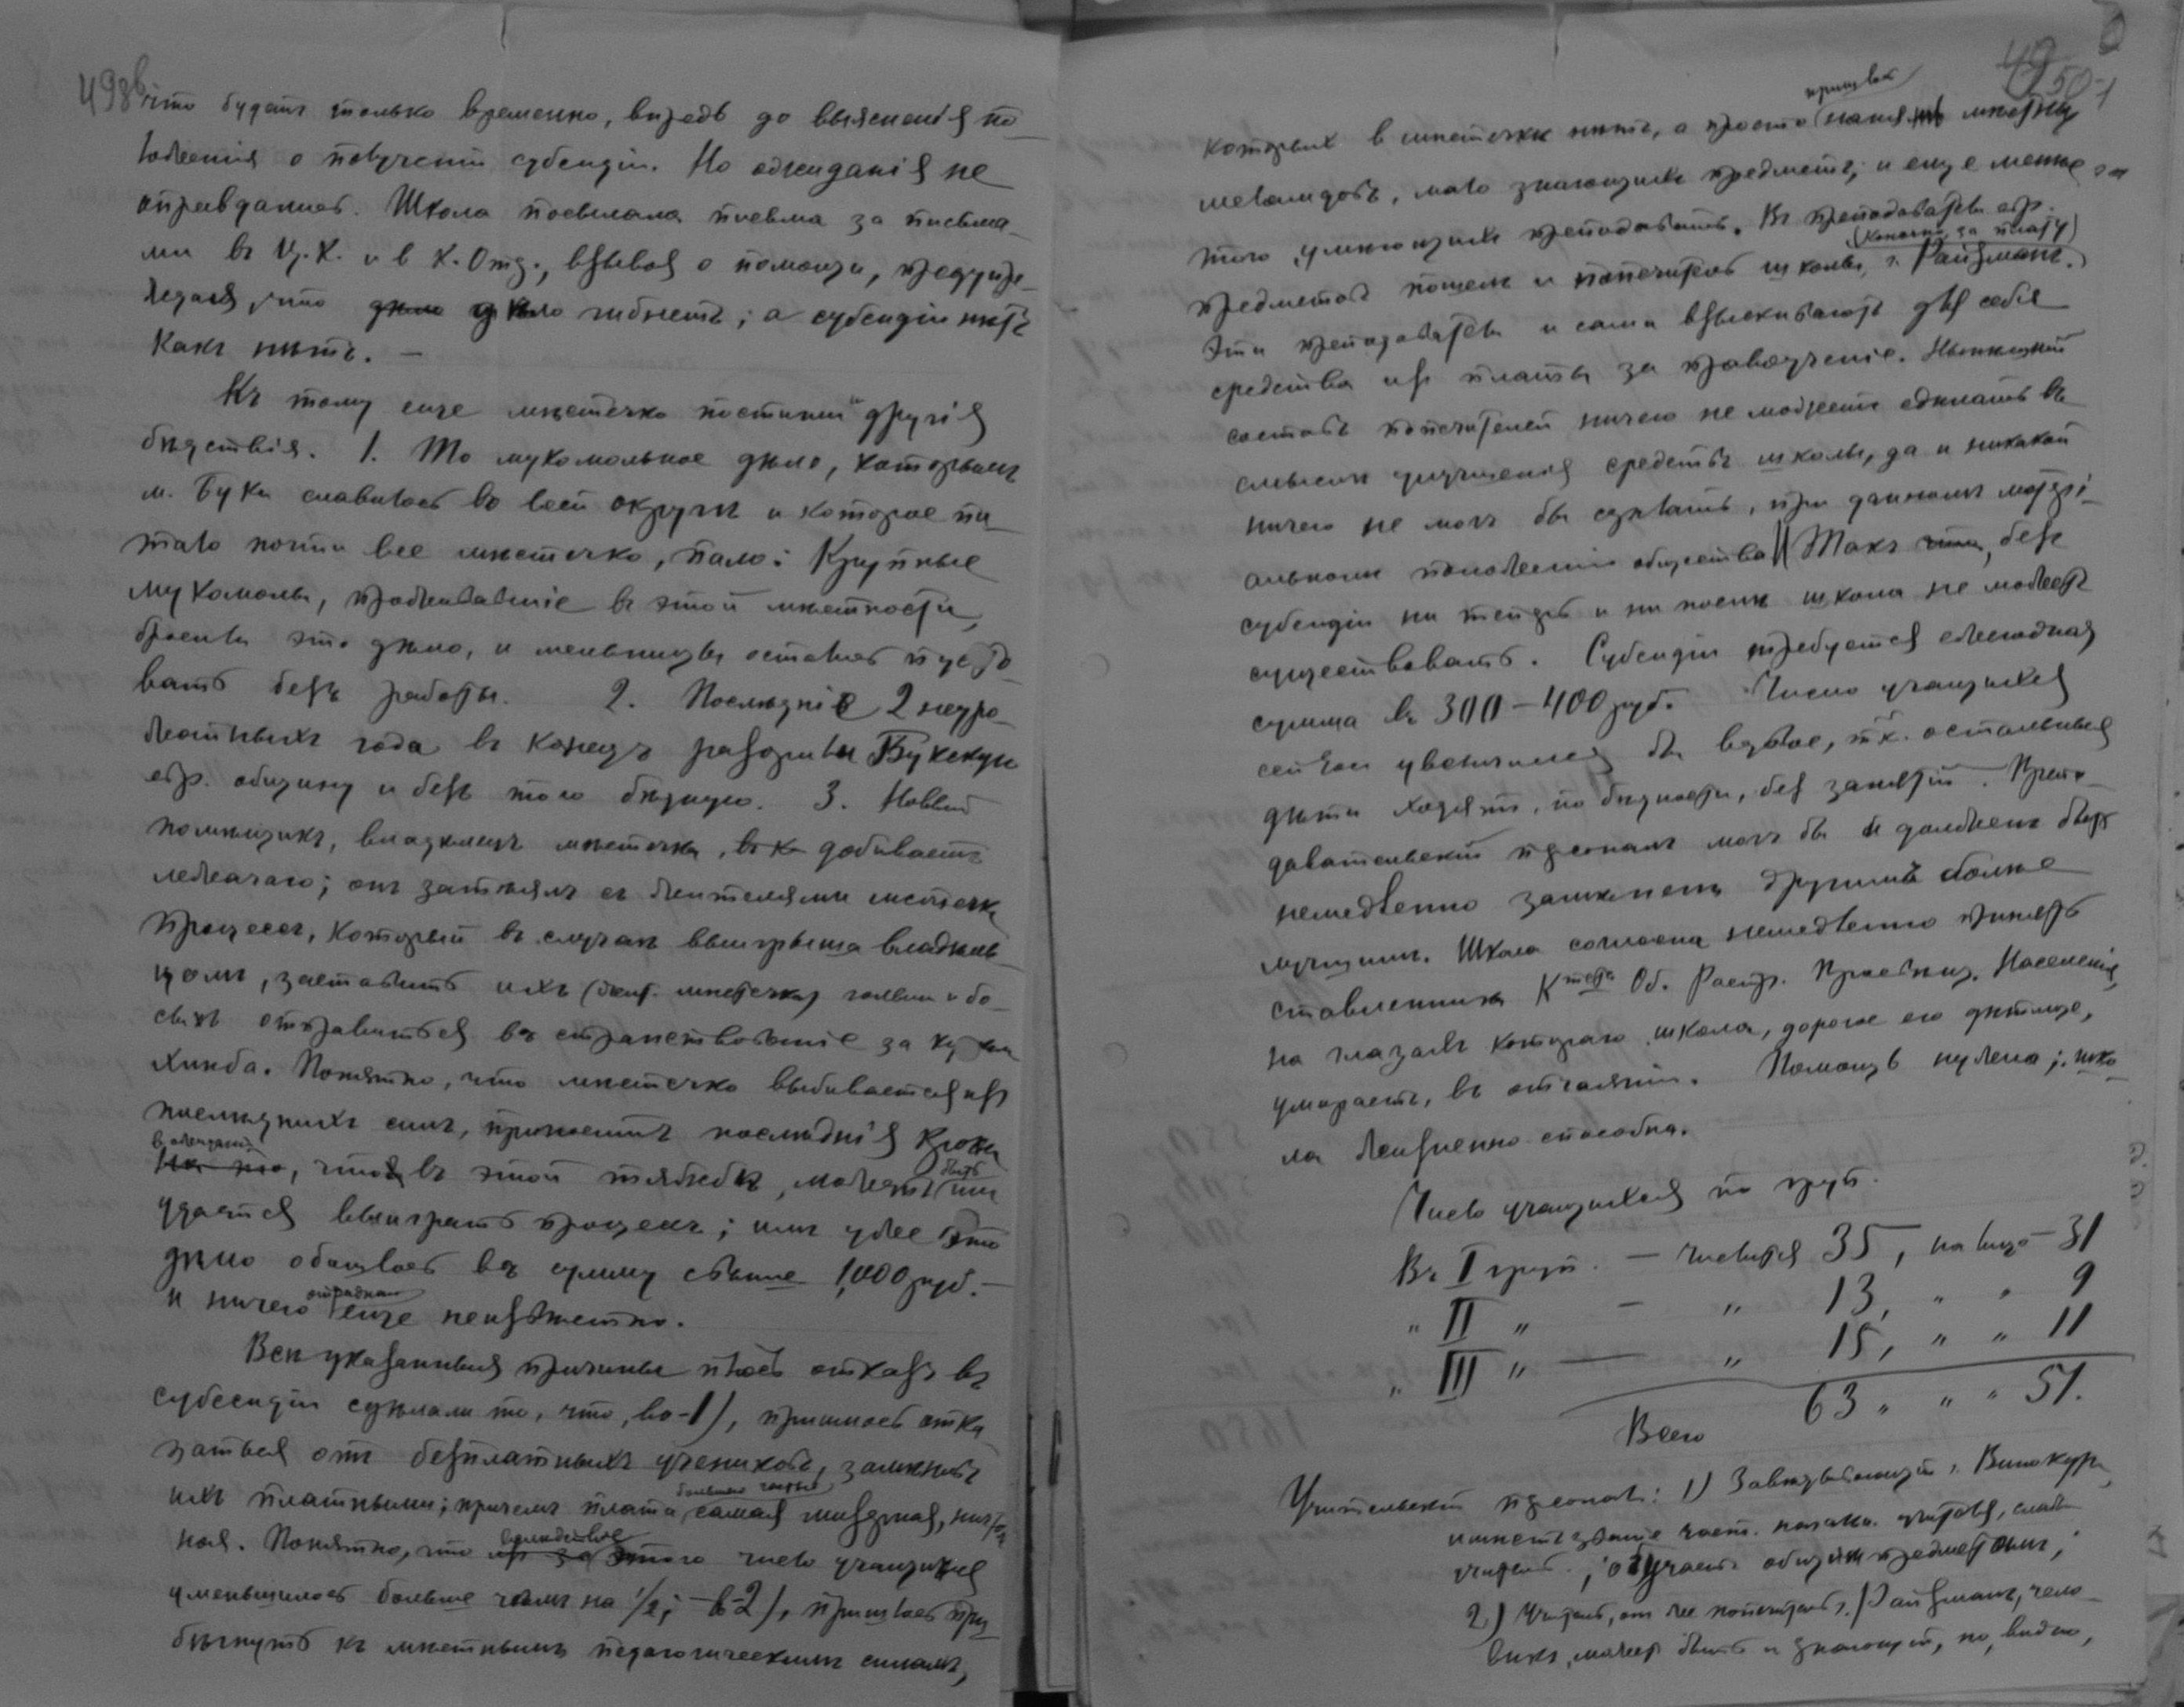 498б
что будетъ только временно, впредь до выясненія по
ложенія о полученіи субсидіи. Но ожиданія не
оправдались. Школа посылала письма за письма-
ми въ Ц.К. и в К. Отд., взывая о помощи, предупре-
ждая, что дѣло гибнетъ; а субсидіи нѣтъ
какъ нѣтъ. —
Къ тому еще мѣстечко постигли другія
бѣдствія. 1. То мукомольное дѣло, которымъ
м. Буки славилось во всей округѣ и которое пи-
тало почти все мѣстечко, пало: Крупные
мукомолы, проживавшіе в этой мѣстности,
бросили это дѣло, и мельницы остались пусто-
вать безъ работы. 2. Послѣдніе 2 неуро-
жайныхъ года въ конецъ разорили Букскую
евр. общину и безъ того бѣдную. 3. Новый
помѣщикъ, владѣлецъ мѣстечка, добиваетъ
лежачаго; онъ затѣялъ съ жителями мѣстечка
процессъ, который въ случаѣ выигрыша владѣль-
цомъ, заставитъ ихъ (жит. мѣстечка) голыми и бо-
сыхъ отправиться въ странствованіе за куском
хлѣба. Понятно, что мѣстечко выбивается изъ
послѣднихъ силъ, приноситъ послѣднія крохи
в ожиданіи, что въ этой тяжбѣ, можетъ быть имъ
удастся выиграть процессъ; имъ уже это
дѣло обошлось въ сумму свыше 1,000 руб. —
и ничего отраднаго еще неизвѣстно.
Всѣ указанныя причины плюсъ отказъ въ
субсидіи сдѣлали то, что, во-1), пришлось отка
заться отъ безплатныхъ учениковъ, замѣнить
ихъ платными; причемъ плата большею частью самая мизерная, ничтож
ная. Понятно, что вслѣдствіе этого число учащихся
уменьшилось больше чѣмъ на 1/2; — в-2), пришлось при-
бѣгнуть къ мѣстнымъ педагогическимъ силамъ,
49 50-1
которых в мѣстечкѣ нѣтъ, а просто мѣстныхъ
меламдовъ, мало знающихъ предметъ, и еще менѣе
того умѣющихъ преподавать. Въ преподаватели евр.
предметовъ пошелъ и попечитель школы, г. Райзманъ. (конечно, за плату)
Эти преподаватели и сами взыскиваютъ для себя
средства изъ платы за правоученіе. Нынѣшній
составъ попечителей ничего не можетъ сдѣлать въ
смыслѣ улучшенія средствъ школы, да и никакой
ничего не могъ бы сдѣлать, при данномъ матері-
альномъ положеніи общества. Такъ что, безъ
субсидіи ни теперь и ни послѣ школа не можетъ
существовать. Субсидіи требуется ежегодная
сумма въ 300 — 400 руб. Число учащихся
сейчас увеличилось бы вдвое, т.к. остальныя
дѣти ходятъ, по бѣдности, без занятій. Препо-
давательскій персоналъ могъ бы и долженъ быть
немедленно замѣненъ другимъ болѣе
лучшимъ. Школа согласна немедленно принять
ставленника К-тета Об. Распр. Просвѣщ. Населеніе,
на глазахъ котораго школа, дорогое его дѣтище,
умираетъ, въ отчаяніи. Помощь нужна; шко-
ла жизненно способна.
Число учащихся по груп.
Въ I груп. — числится 35, на лицо — 31
„ II „ — „ 13, „ „ 9
„ III „ — „ 15, „ „ 11
Всего 63 „ „ „ 51.
Учительскій персоналъ: 1) Завѣдывающій г. Винокуръ,
имѣетъ званіе част. начальн. учителя,
обучаетъ общимъ предметамъ;
2) Учитель, он же попечитель г. Райзманъ, чело-
вѣкъ, может быть и знающій, но, видно,